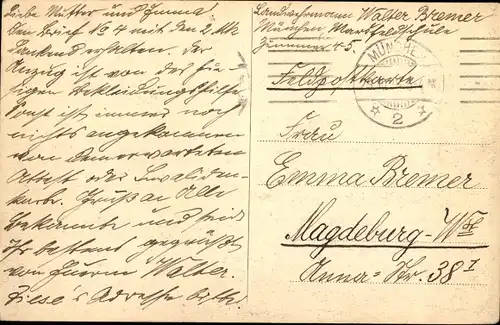 Liebe Mutter und Emma!
Den Brief No 4 mit den 2 Mk
dankend erhalten. Der
Anzug ist von der hie-
sigen Bekleidungsstelle.
Sonst ist immer noch
nichts angekommen
von dem erwarteten
Attest oder Invaliden-
karte. Grüße an Alle
Bekannte und seid
Ihr bestens gegrüßt
von Euerm Walter.
Adresse bitte.
Landwehrmann Walter Bremer
München Marsfeldschule
Zimmer 45.
MÜNCHEN
2
Feldpostkarte
Frau
Emma Bremer
Magdeburg-W
Anna-Str. 38 I